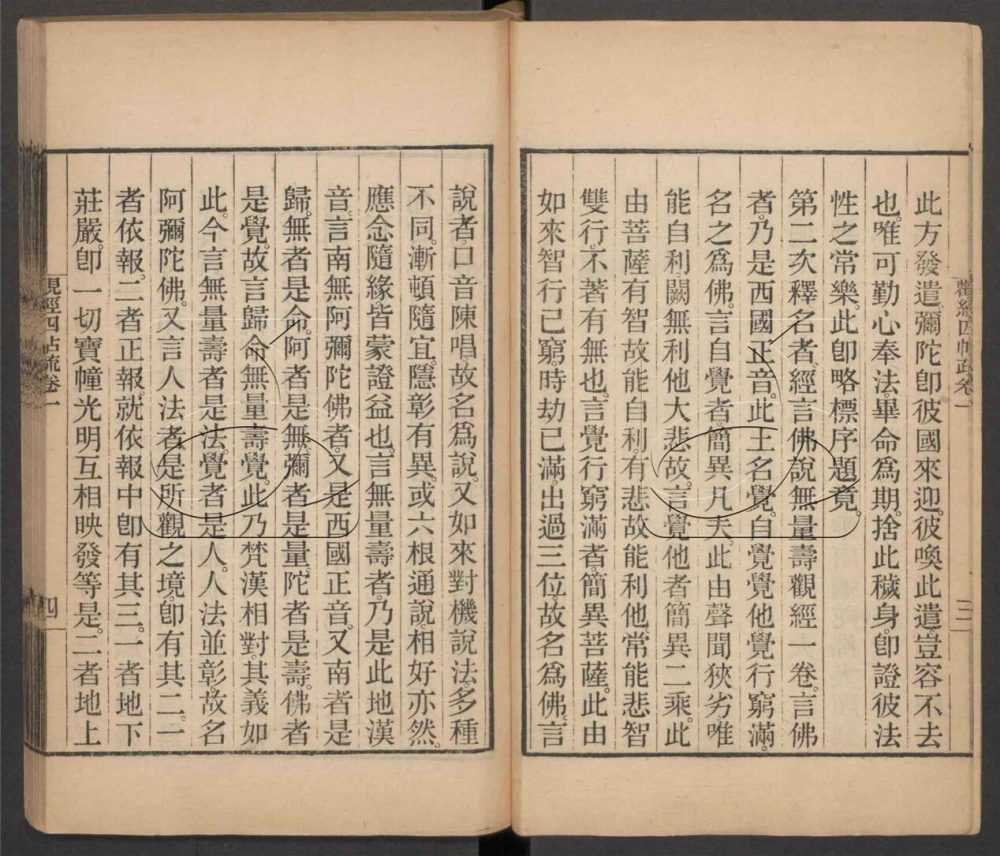 觀經四帖疏卷一
三
此方發遣彌陀卽彼國來迎彼喚此遣豈容不去
也唯可勤心奉法畢命爲期捨此穢身卽證彼法
性之常樂此卽略標序題竟
第二次釋名者經言佛說無量壽觀經一卷言佛
者乃是西國正音此土名覺自覺覺他覺行窮滿
名之爲佛言自覺者簡異凡夫此由聲聞狹劣唯
能自利闕無利他大悲故言覺他者簡異二乘此
由菩薩有智故能自利有悲故能利他常能悲智
雙行不著有無也言覺行窮滿者簡異菩薩此由
如來智行已窮時劫已滿出過三位故名爲佛言
說者口音陳唱故名爲說又如來對機說法多種
不同漸頓隨宜隱彰有異或六根通說相好亦然
應念隨緣皆蒙證益也言無量壽者乃是此地漢
音言南無阿彌陀佛者又是西國正音又南者是
歸無者是命阿者是無彌者是量陀者是壽佛者
是覺故言歸命無量壽覺此乃梵漢相對其義如
此今言無量壽者是法覺者是人人法並彰故名
阿彌陀佛又言人法者是所觀之境卽有其二一
者依報二者正報就依報中卽有其三一者地下
莊嚴卽一切寶幢光明互相映發等是二者地上
觀經四帖疏卷一
四